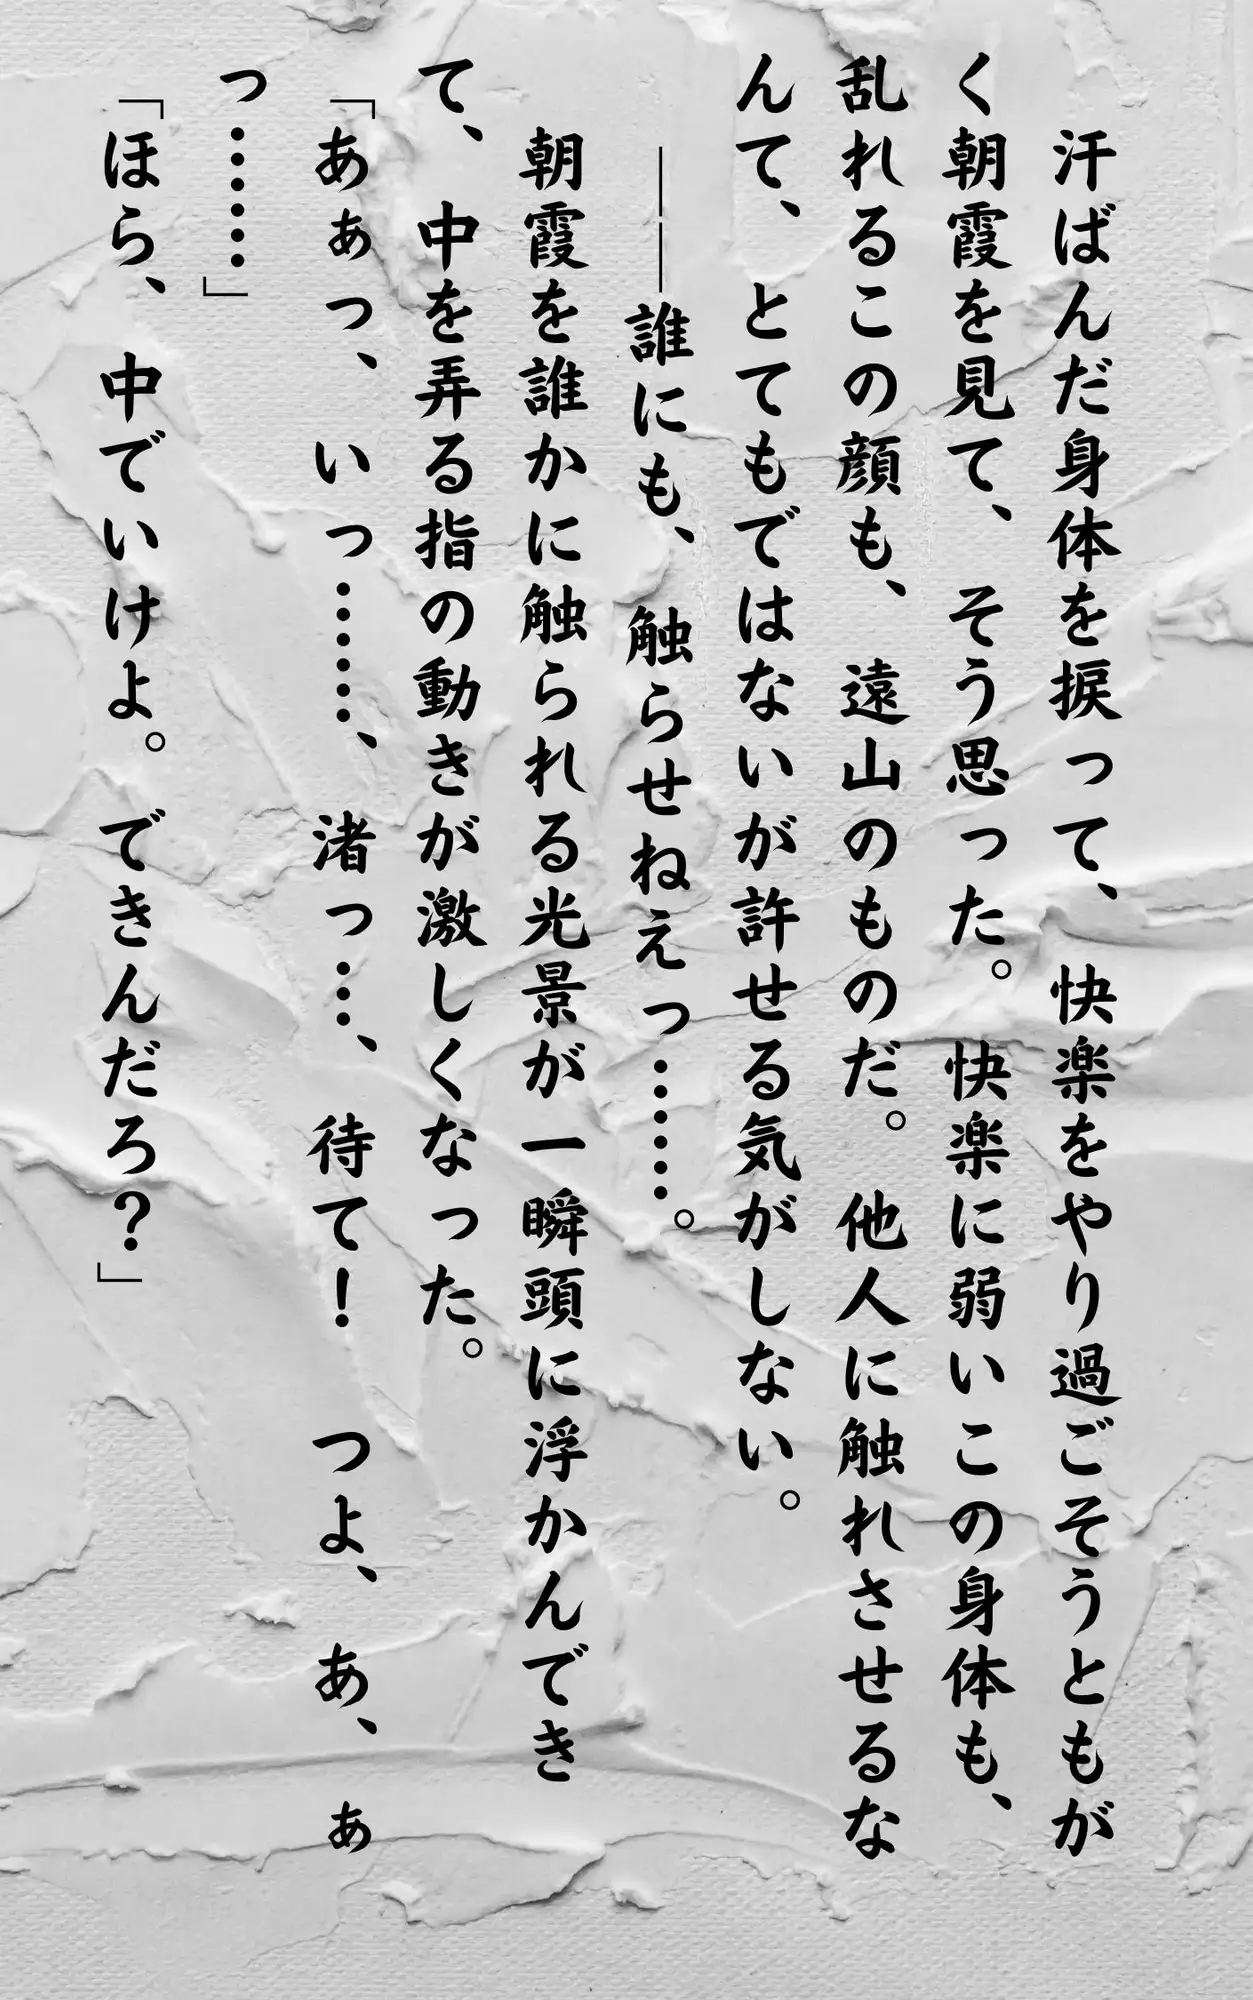 汗ばんだ身体を捩って、快楽をやり過ごそうともが
く朝霞を見て、そう思った。快楽に弱いこの身体も、
乱れるこの顔も、遠山のものだ。他人に触れさせるな
んて、とてもではないが許せる気がしない。
――誰にも、触らせねえっ……。
朝霞を誰かに触られる光景が一瞬頭に浮かんでき
て、中を弄る指の動きが激しくなった。
「あぁっ、いっ……、渚っ…、待て！　つよ、あ、ぁ
っ……」
「ほら、中でいけよ。できんだろ？」